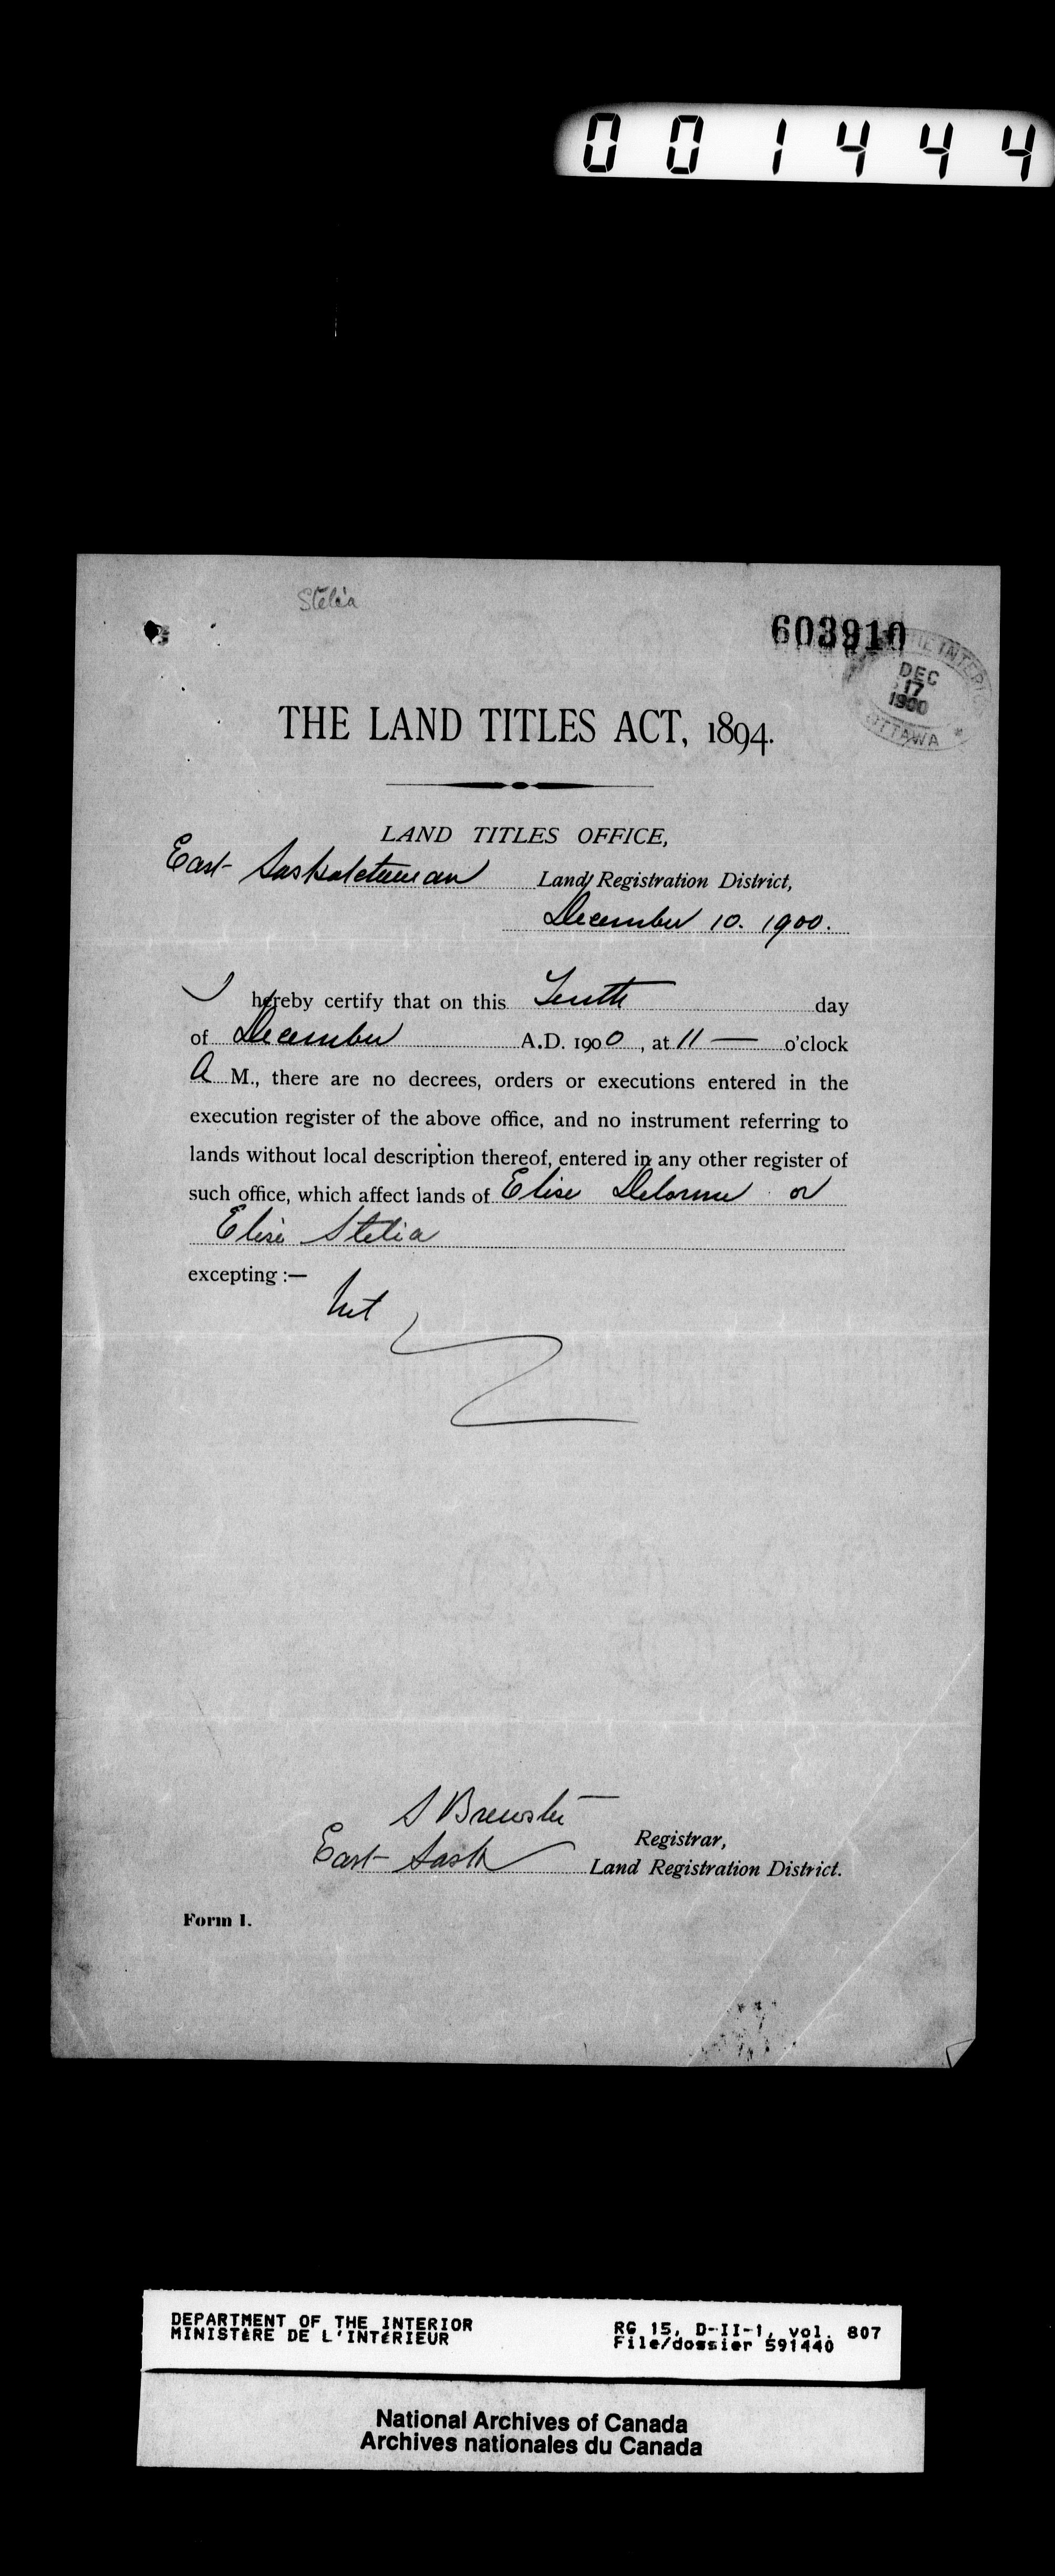 001444
Stelia
603910
THE INTERI
DEC
17
1900
OTTAWA *
THE LAND TITLES ACT, 1894.
LAND TITLES OFFICE,
East Saskatchewan Land Registration District,
December 10. 1900.
I hereby certify that on this Tenth day
of December A.D. 1900, at 11 — o'clock
A M., there are no decrees, orders or executions entered in the
execution register of the above office, and no instrument referring to
lands without local description thereof, entered in any other register of
such office, which affect lands of Elise Delorme or
Elise Stelia
excepting :—
S Brewster
Registrar,
East Sask Land Registration District.
Form I.
DEPARTMENT OF THE INTERIOR RG 15, D-II-1, vol. 807
MINISTÈRE DE L'INTÉRIEUR File/dossier 591440
National Archives of Canada
Archives nationales du Canada